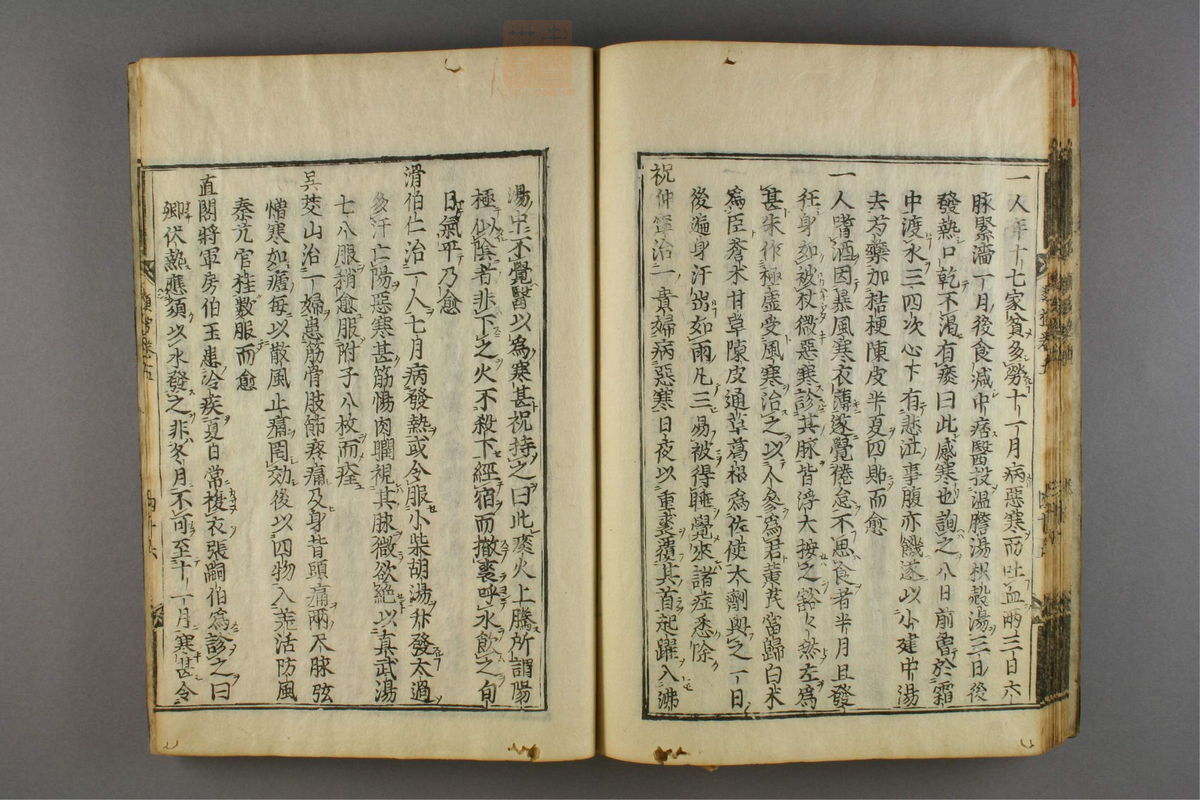 一人年十七家貧多勞十一月病惡寒而吐血兩三日六
脉緊濇一月後食減中痞醫投温膽湯枳殻湯三日後
發熱口乾不渇有痰曰此感寒也詢之八日前曽於霜
中渡水三四次心下有悲泣事腹亦饑遂以小建中湯
去芍藥加桔梗陳皮半夏四貼而愈
一人嗜酒因暴風寒衣薄遂覺倦怠不思食者半月且發
徃身如被杖微惡寒診其脉皆浮大按之豁々然左爲
甚朱作極虚受風寒治之以人參爲君黄芪當歸白术
爲臣蒼术甘草陳皮通草葛根爲佐使太劑與之一日
後遍身汗出如雨凡三易被得睡覺來諸症悉除
祝仲寧治一貴婦病惡寒日夜以重裘覆其首起躍入沸
湯中不覺醫以爲寒甚祝持之曰此痰火上騰所謂陽
極似陰者非下之火不殺下經宿而撤裘呼水飲之旬
日氣平乃愈
滑伯仁治一人七月病發熱或令服小柴胡湯升發太過
多汗亡陽惡寒甚筋惕肉瞤視其脉微欲絶以真武湯
七八服稍愈服附子八枚而痊
吳茭山治一婦患筋骨肢節疼痛及身背頭痛兩尺脉弦
憎寒如瘧毎以散風止痛罔効後以四物入羗活防風
秦艽官桂數服而愈
直閣將軍房伯玉患冷疾夏日常複衣張嗣伯爲診之曰
卿伏熱應須以水發之非冬月不可至十一月寒甚令